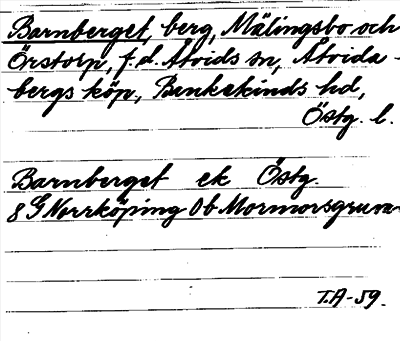 Barnberget, berg, Mälingsbo och
Örstorp, f.d. Åtvids sn, Åtvida-
bergs köp., Bankekinds hd,
Östg. l.
Barnberget ek Östg.
8 G Norrköping 0b Mormorsgruva
T.A-59.